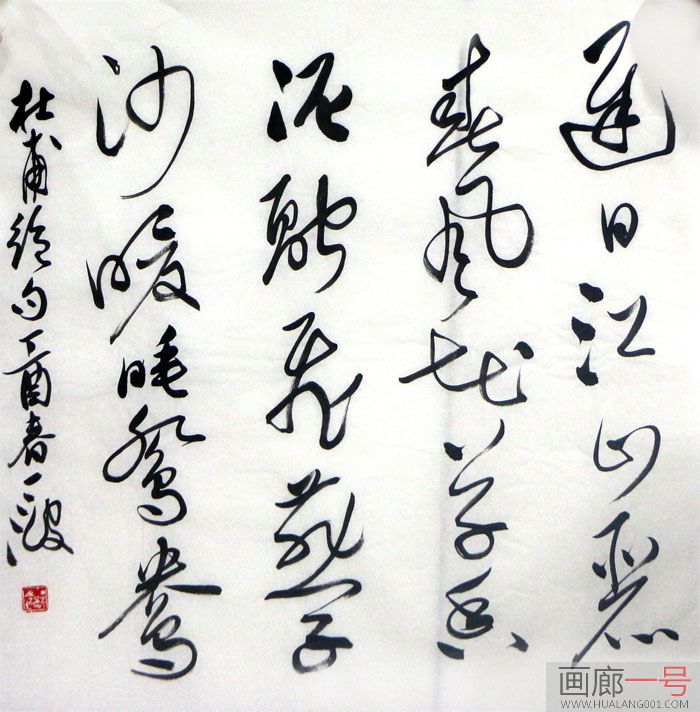 遲日江山麗
春風花草香
泥融飛燕子
沙暖睡鴛鴦
杜甫绝句丁酉春一波
画廊一号
WWW.HUALANG001.COM